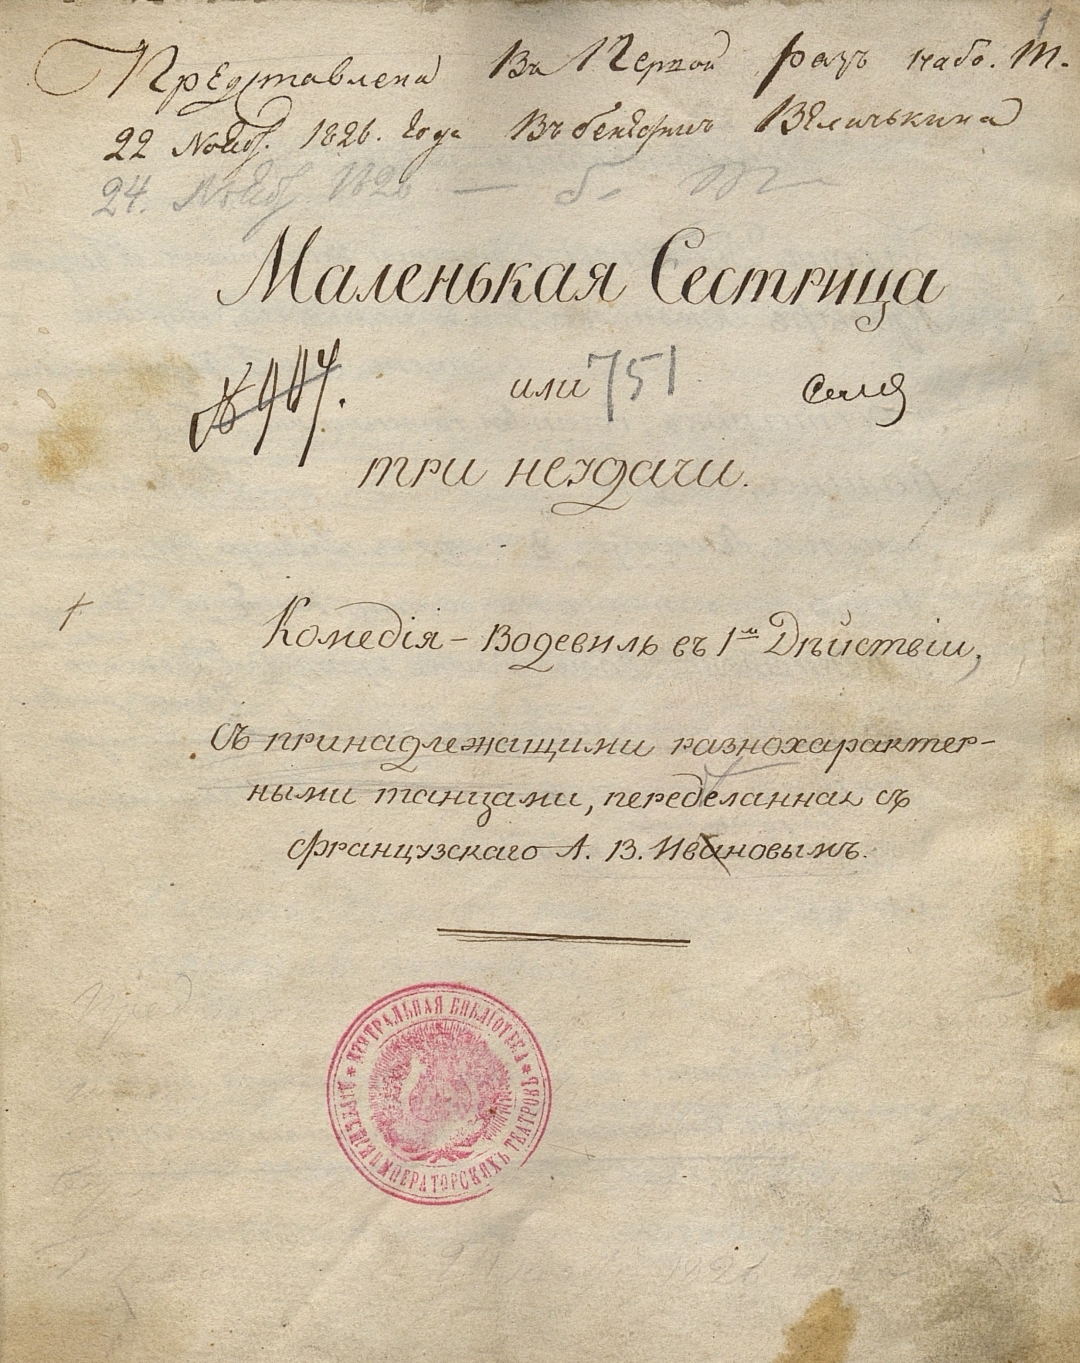 1
Представлена Въ Первой разъ на бо. Т.
22 Нояб. 1826. года Въ бенефисъ Величкина
24. Нояб. 1826 — б. Т
Маленькая Сестрица
№ 907. или 751
три неудачи.
Комедія-Водевиль въ 1м Дѣйствіи,
съ принадлежащими разнохарактер-
ными танцами, переделанная съ
французскаго А. В. Ивановымъ.
ЦЕНТРАЛЬНАЯ БИБЛІОТЕКА
ИМПЕРАТОРСКИХЪ ТЕАТРОВЪ